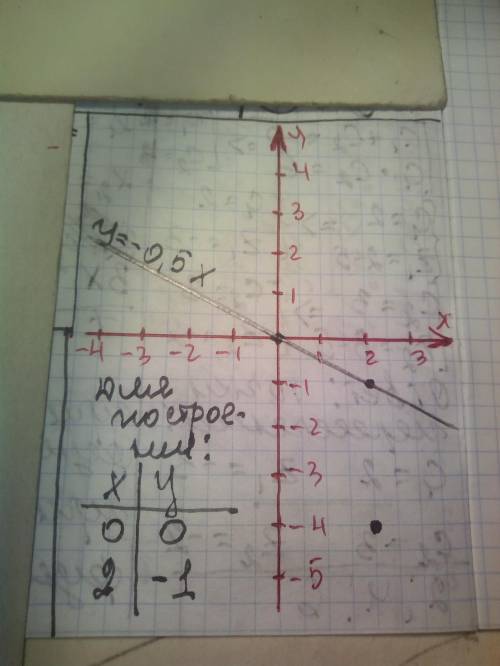 y
4
3
2
1
y=-0,5x
x
-4 -3 -2 -1 1 2 3
-1
-2
-3
-4
-5
для
построе-
ния:
x y
0 0
2 -1